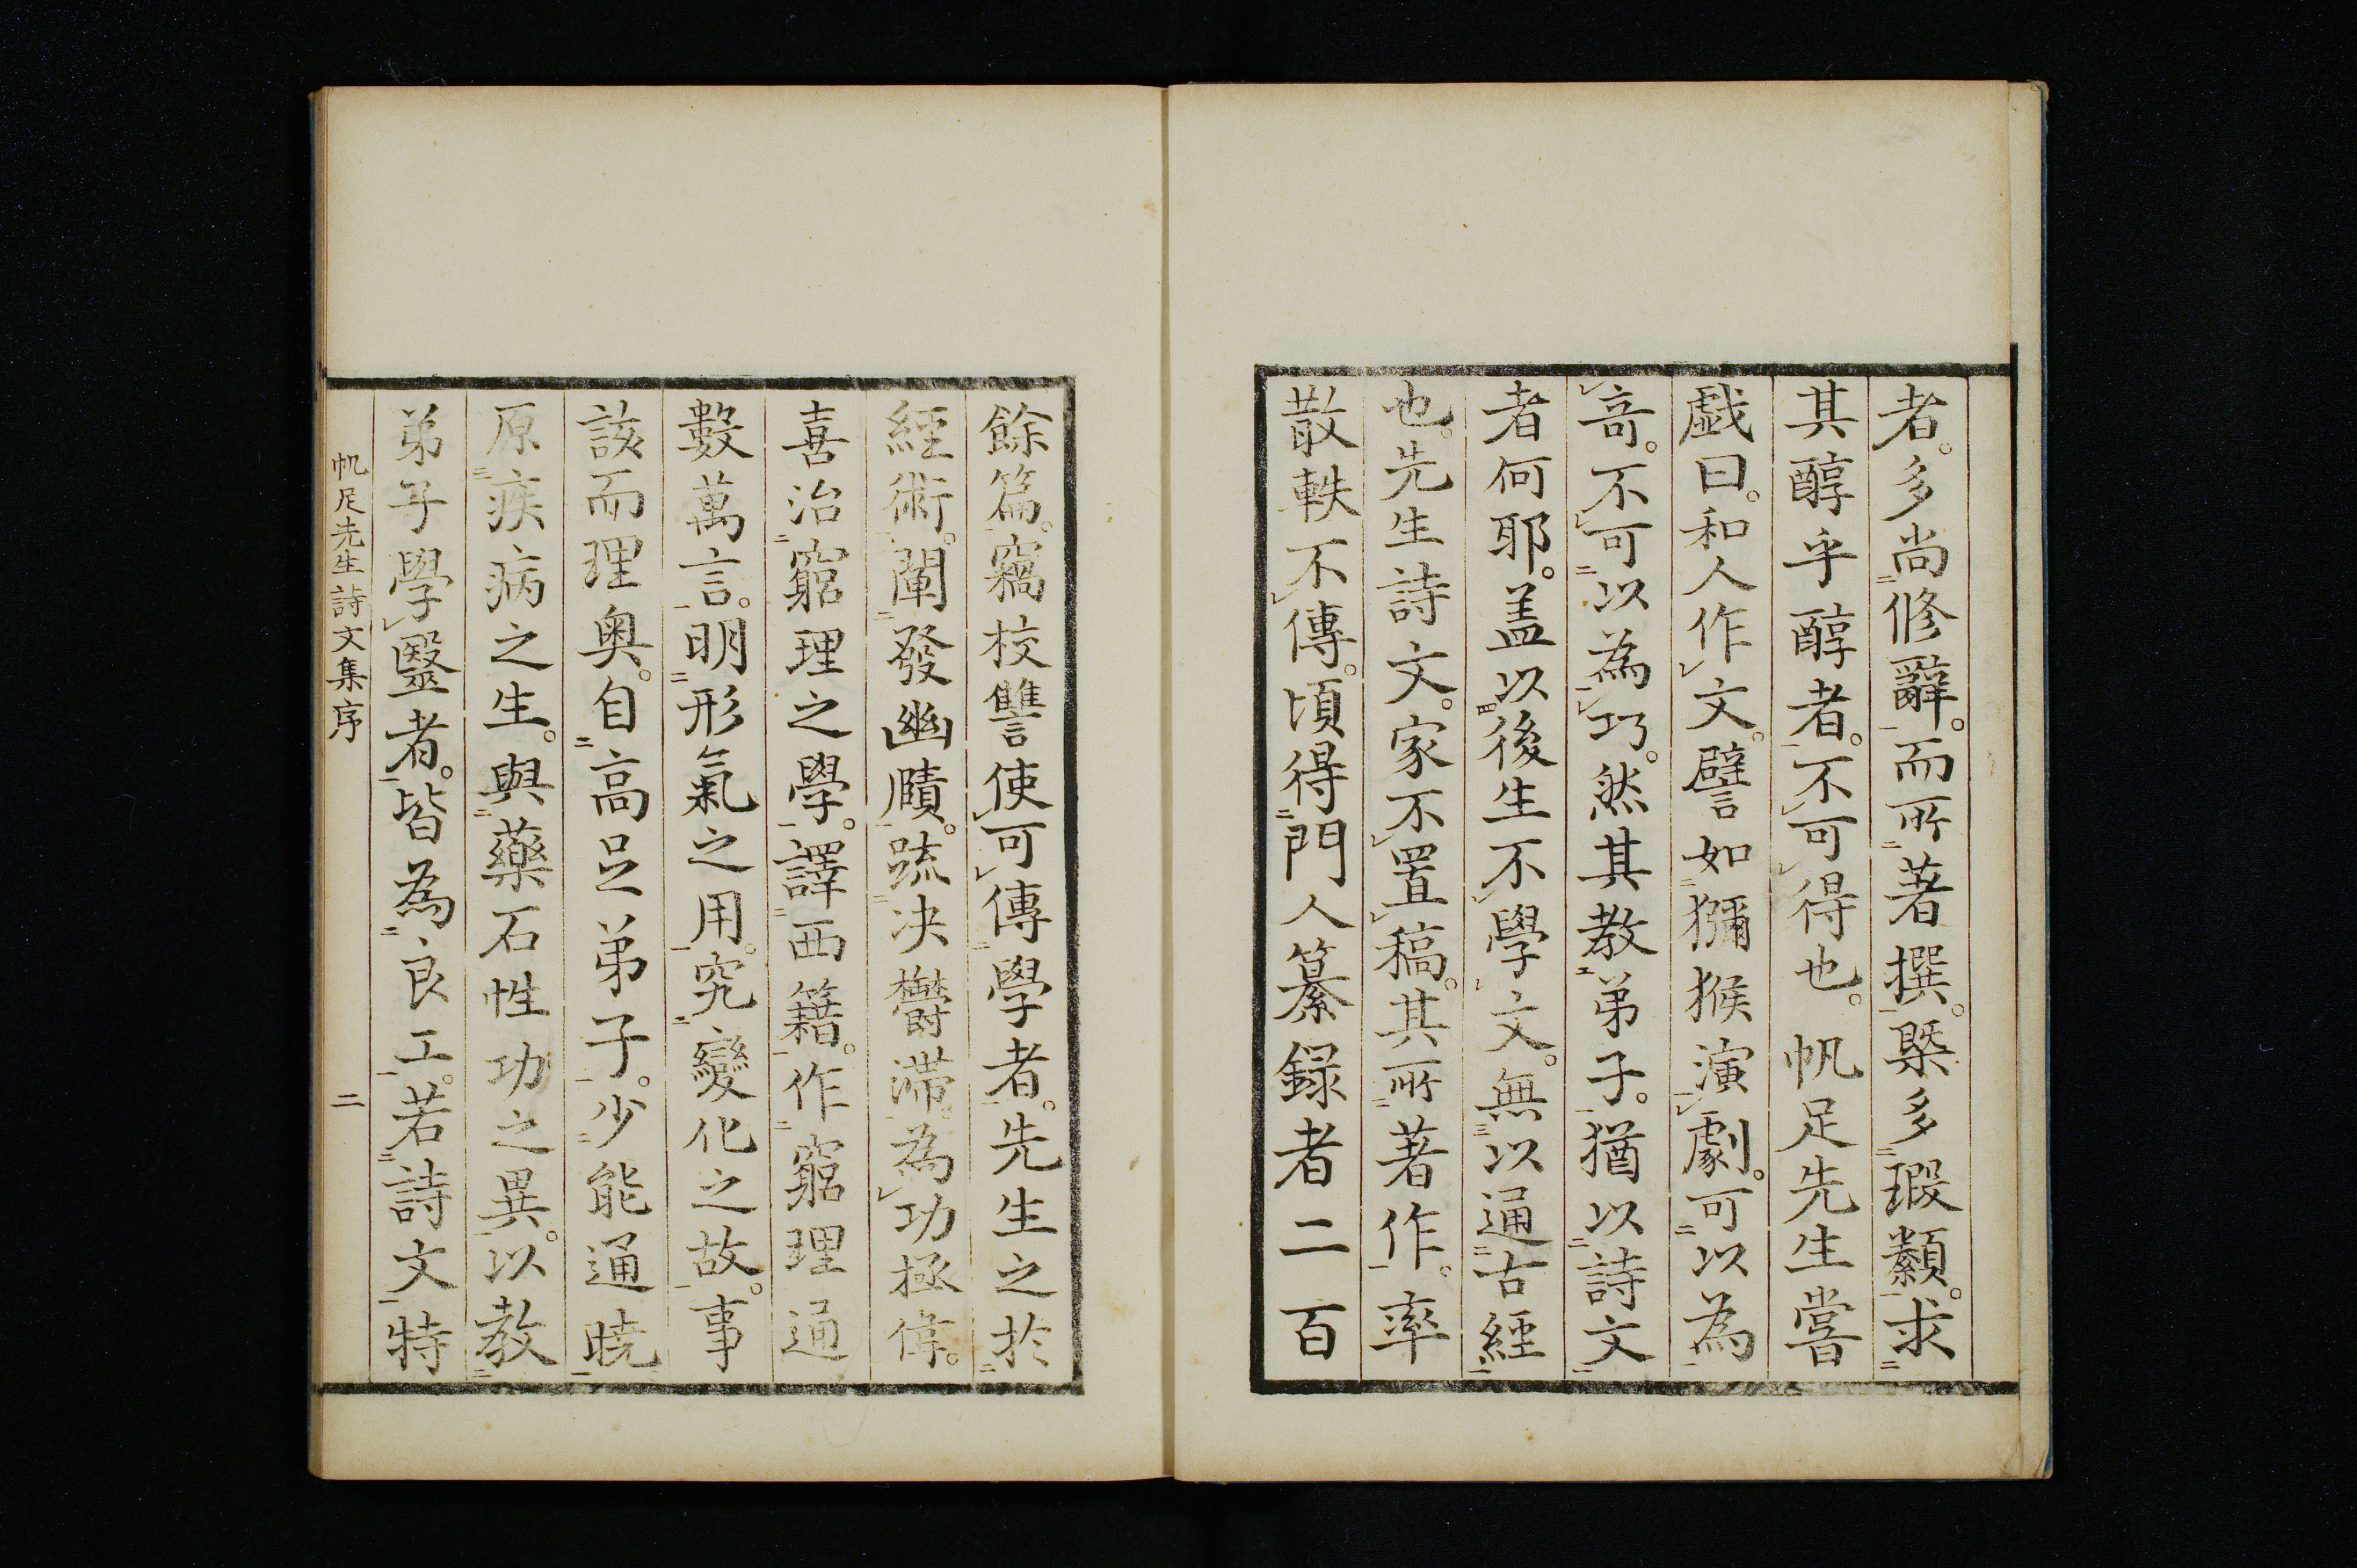 者。多尚修辭。而所著撰。槩多瑕纇。求
其醇乎醇者。不可得也。帆足先生嘗
戯曰。和人作文。譬如獼猴演劇。可以為
竒。不可以為巧。然其教弟子。猶以詩文
者何耶。盖以後生不學文。無以通古經
也。先生詩文。家不置稿。其所著作。率
散軼不傳。頃得門人纂録者二百
餘篇。竊校讐使可傳學者。先生之於
經術。闡發幽賾。疏决欝滯。為功極偉。
喜治窮理之學。譯西籍。作窮理通
數萬言。明形氣之用。究變化之故。事
該而理奥。自高足弟子。少能通暁
原疾病之生。與藥石性功之異。以教
弟子學毉者。皆為良工。若詩文特
帆足先生詩文集序 二